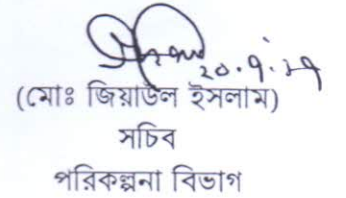 ২০.৭.১৭
(মোঃ জিয়াউল ইসলাম)
সচিব
পরিকল্পনা বিভাগ